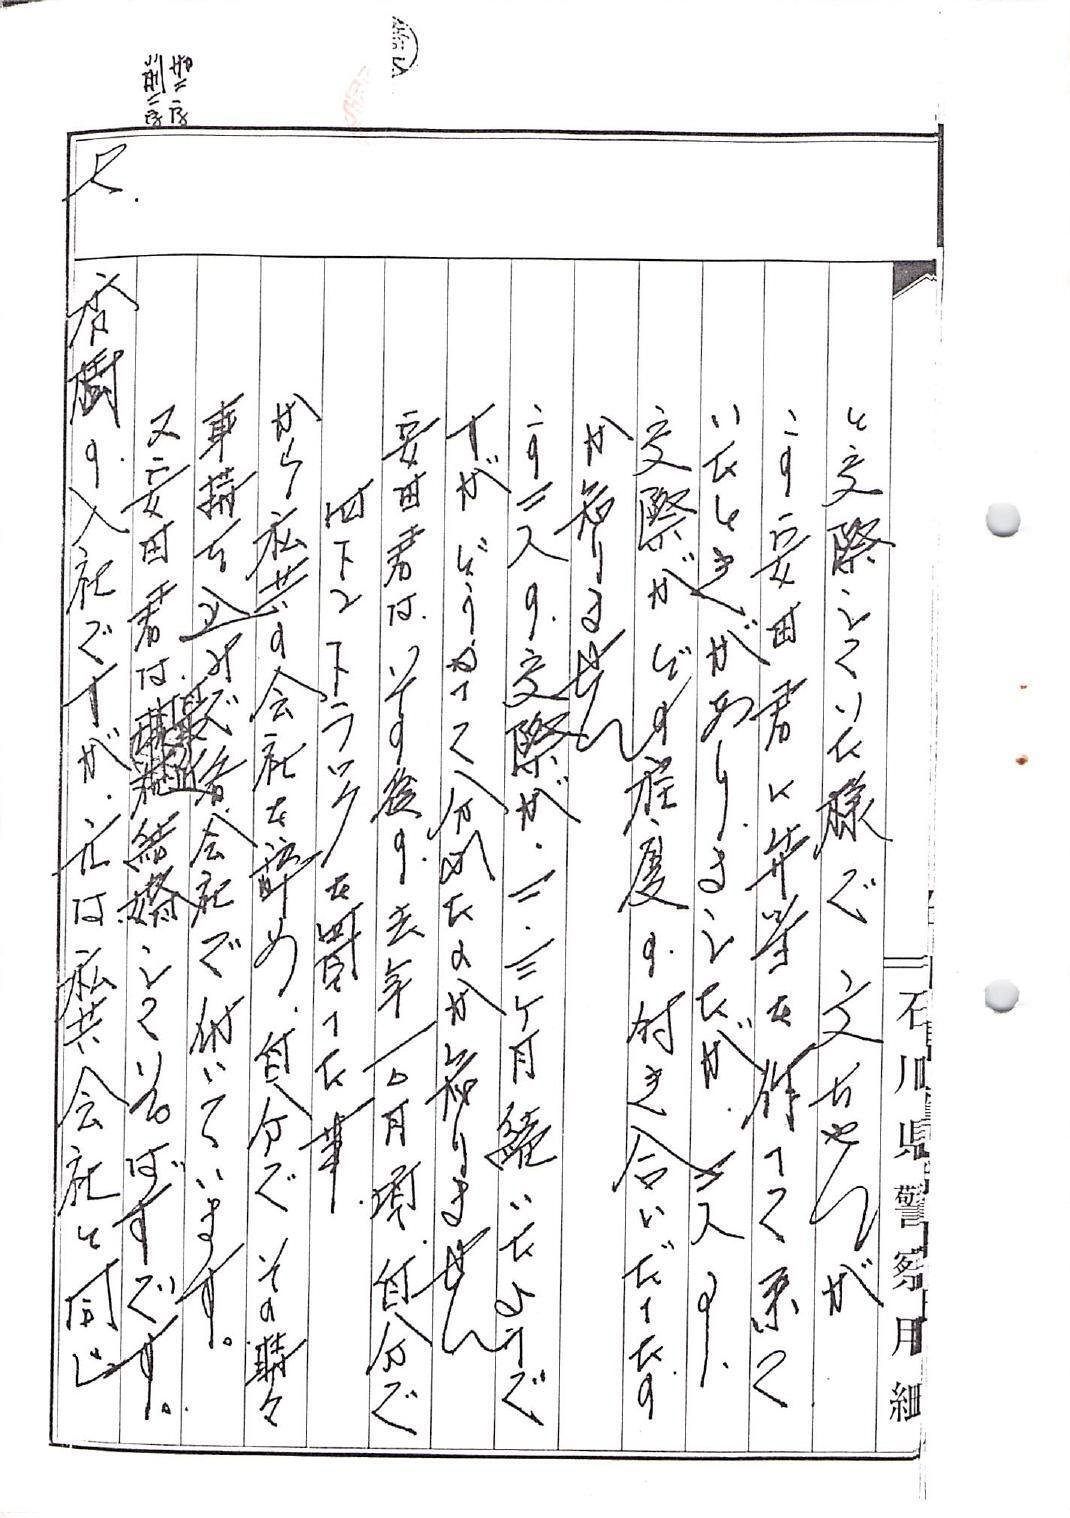 と交際していた様で 文ちゃんが
この安田君に弁当を作って来て
いたときがありましたが、二人の
交際がどの程度の付き合いだったの
か知りません
この二人の交際が、二、三ケ月続いたようで
すが どうなって分れたのか知りません
安田君は、その後の去年一〇月頃、自分で
四トントラックを買った事
から私共の会社を辞め、自分で その時々
車持ち込みで 会社で 働いています。
又安田君は 結婚しているはずです。
の入社ですが、元は私共会社と同じ
石川県警察用細